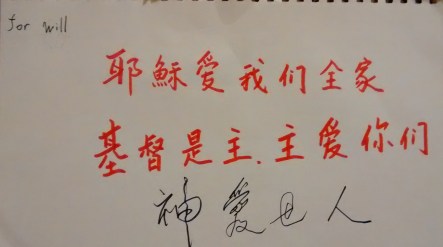 for will
耶穌爱我们全家
基督是主.主爱你们
神愛世人